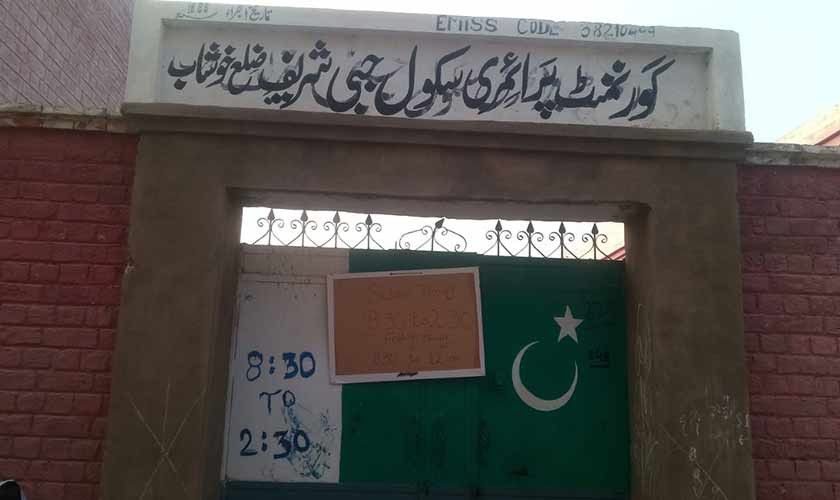 تاریخ اجراء
EMISS CODE 38210
گورنمنٹ پرائمری سکول جبی شریف ضلع خوشاب
School Timing
8:30 to 2:30
8:30
TO
2:30